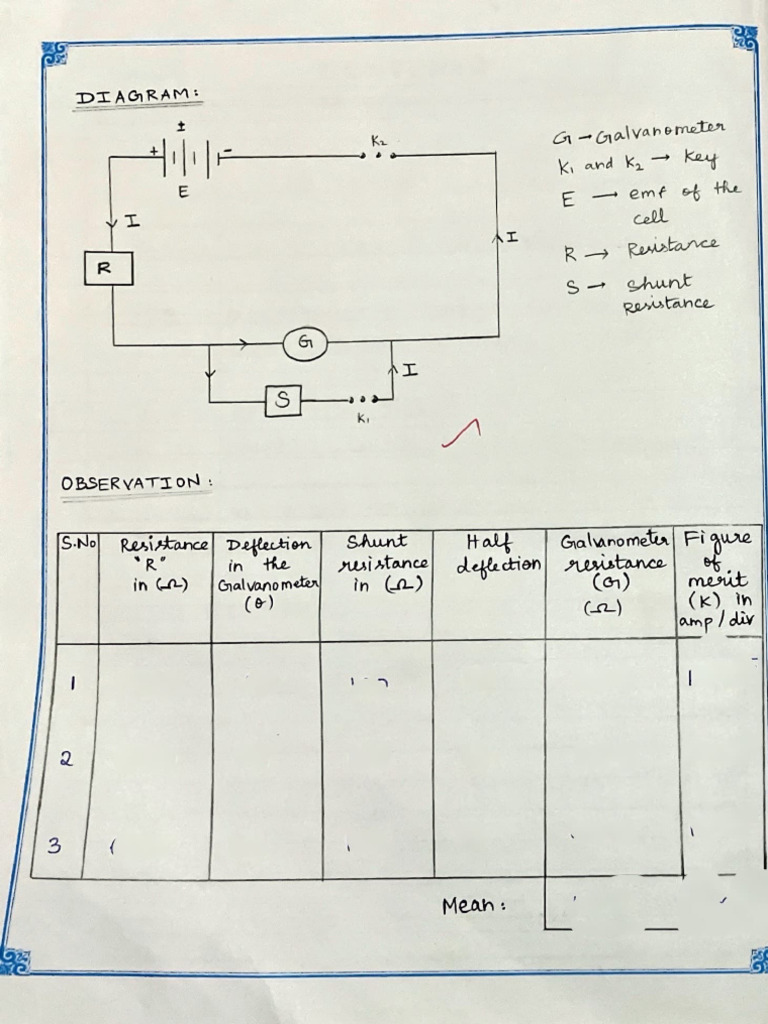 DIAGRAM:
±
+ -
E
K₂
I
R
I
G
I
S
K₁
G → Galvanometer
K₁ and K₂ → Key
E → emf of the
cell
R → Resistance
S → Shunt
Resistance
OBSERVATION:
S.No
Resistance
"R"
in (Ω)
Deflection
in the
Galvanometer
(θ)
Shunt
resistance
in (Ω)
Half
deflection
Galvanometer
resistance
(G)
(Ω)
Figure
of
merit
(K) in
amp/div
1
2
3
Mean: